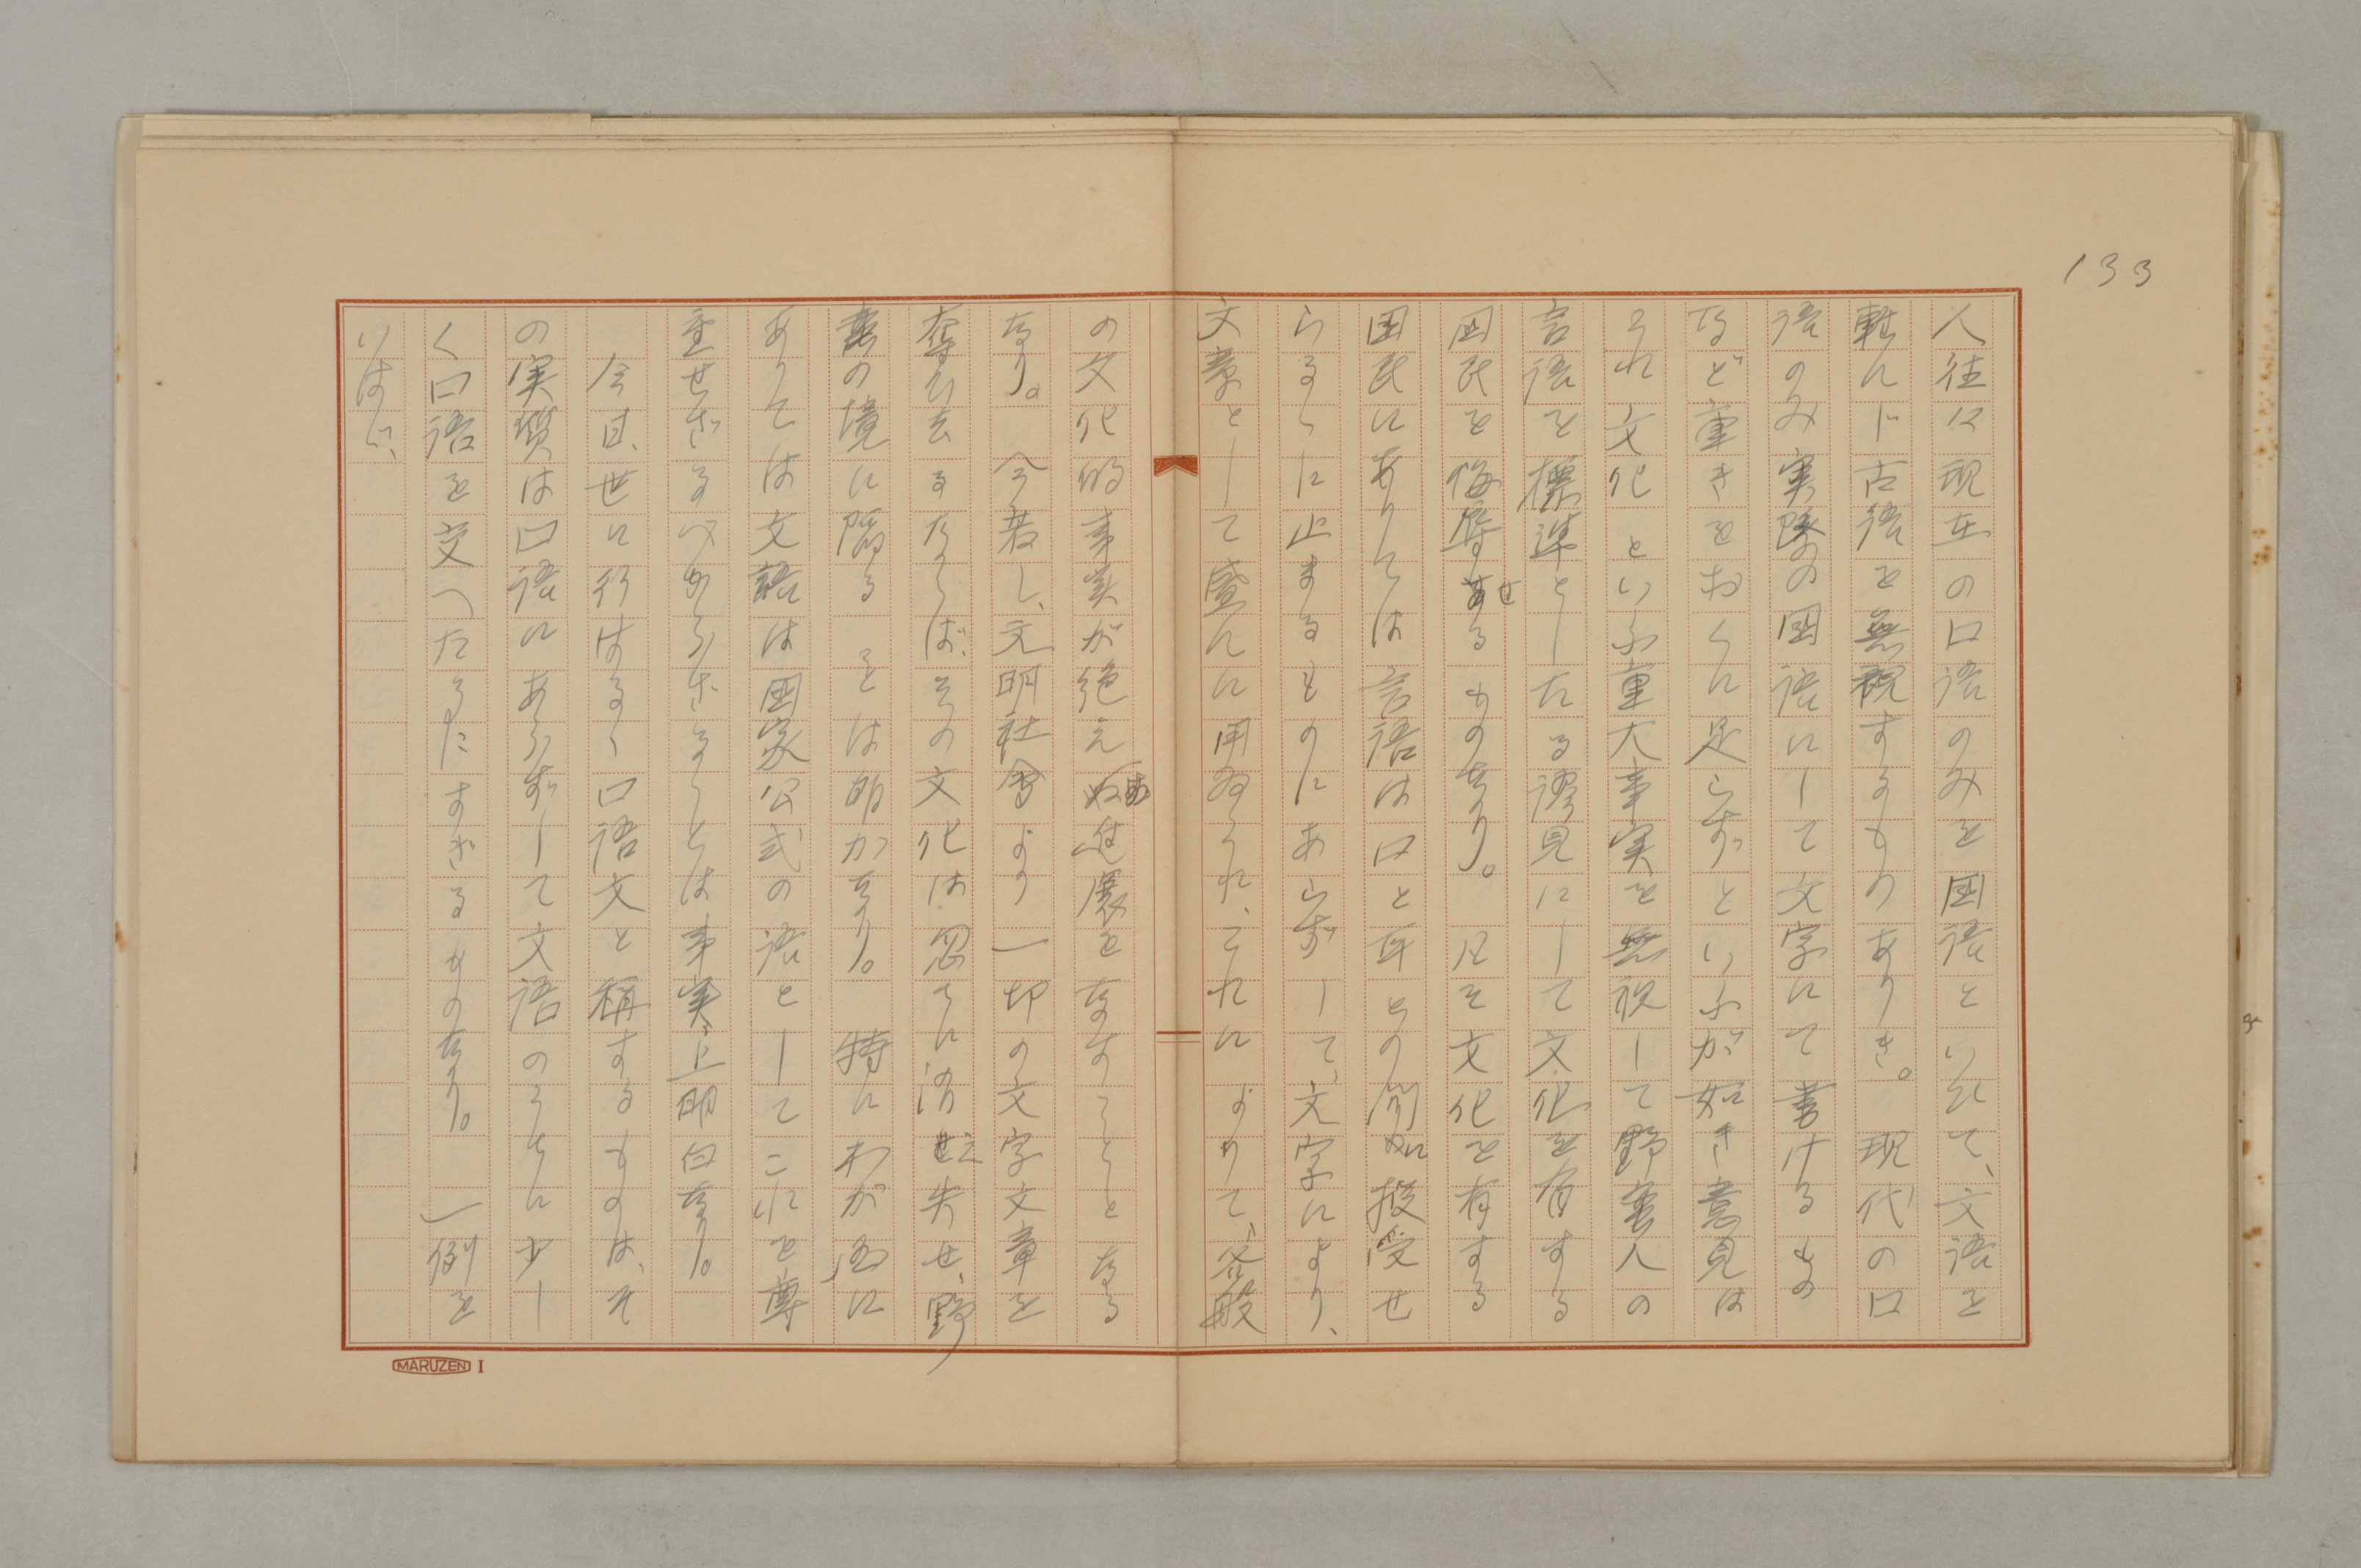 133
人往々現在の口語のみを国語といひて、文語を
軽んじ古語を無視するものありき。現代の口
語のみ実際の国語にして文字にて書けるもの
など重きをおくに足らずといふが如き意見は
これ文化といふ重大事実を無視して野蛮人の
言語を標準としたる謬見にして文化を有する
国民を侮辱せるものなり。凡そ文化を有する
国民にありては言語は口と耳との間に授受せ
らるゝに止まるものにあらずして、文字により、
文章として盛んに用ゐられ、これによりて、各般
の文化的事実が絶えず進展をなすことゝなる
なり。今若し、文明社会より一切の文字文章を
奪ひ去るならば、その文化は忽ちに消え失せ、野
蛮の境に陥るべきは明かなり。特にわが国に
ありては文語は国家公式の語としてこれを尊
重せざるべからざることは事実上明白なり。
今日、世に行はるゝ口語文と称するものは、そ
の実質は口語にあらずして文語のうちに少し
く口語を交へたるにすぎざるものなり。一例を
いはゞ、
MARUZEN I